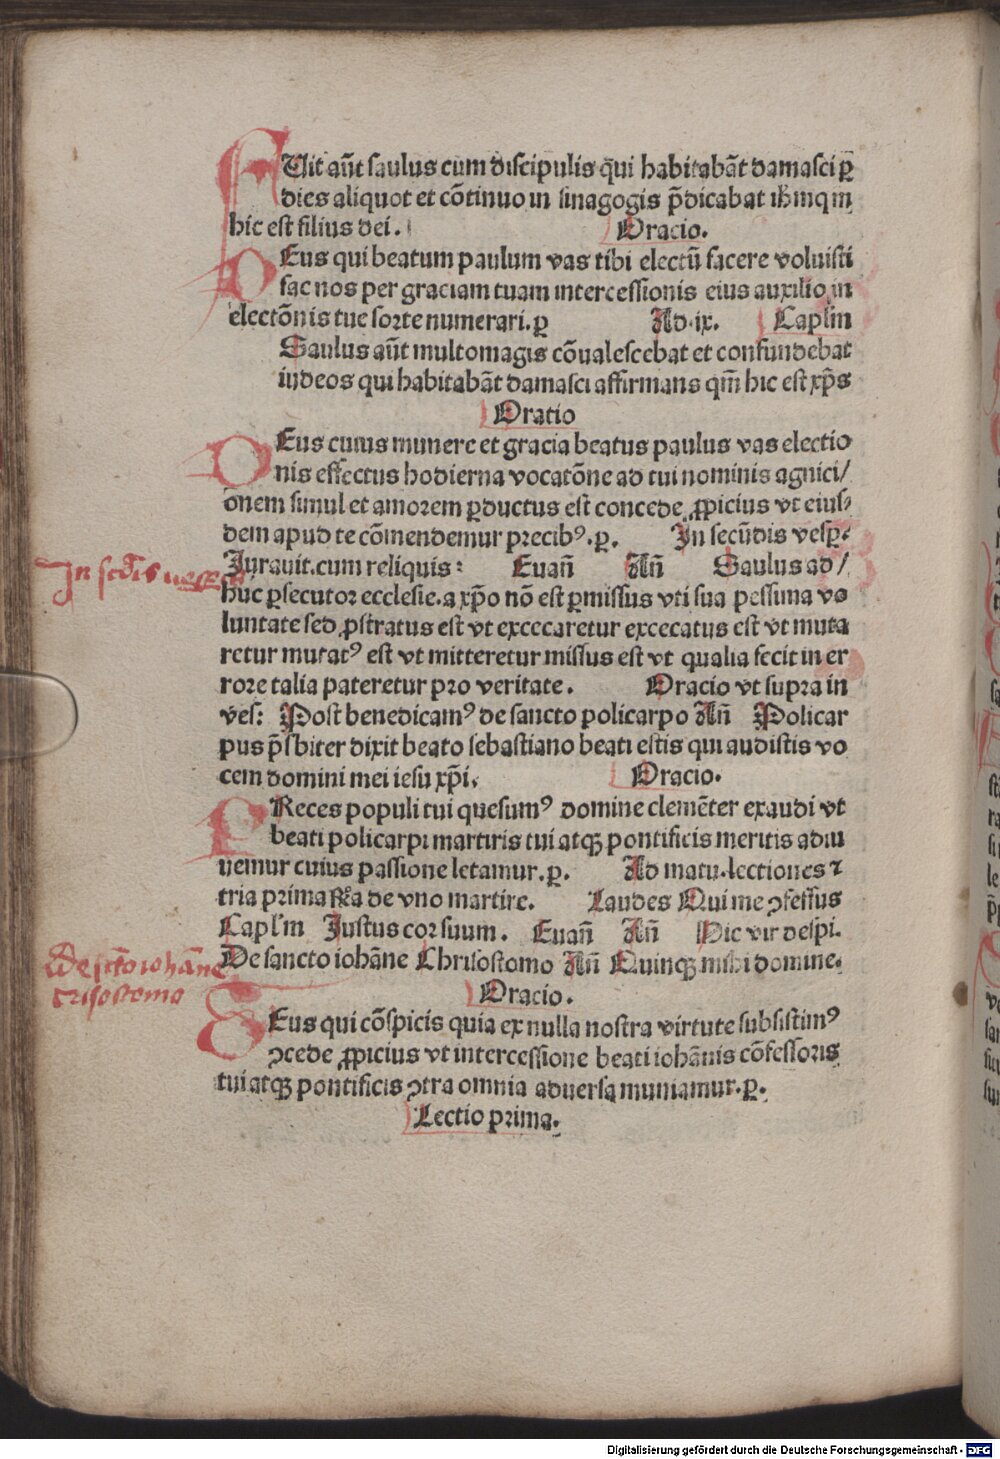 FUit aūt saulus cum discipulis q̄ui habitabāt damasci ꝑ
dies aliquot et cōtinuo in sinagogis p̄dicabat ihm̄ qm̄
hic est filius dei. Oracio.
DEus qui beatum paulum vas tibi electū facere voluisti
fac nos per graciam tuam intercessionis eius auxilio in
electōnis tue sorte numerari. ꝑ Ad .ix. Capl'm
Saulus aūt multomagis cōualescebat et confundebat
iudeos qui habitabāt damasci affirmans qm̄ hic est xp̄s
Oratio
DEus cuius munere et gracia beatus paulus vas electio
nis effectus hodierna vocatōne ad tui nominis agnici/
onem simul et amorem ꝑductus est concede ꝓpicius vt eius⸗
dem apud te cōmendemur precibꝰ. ꝑ. In secūdis vesꝑ.
In scd̄is uesꝑ
Iurauit. cum reliquis: Euan̄ An̄ Saulus ad/
huc ꝑsecutor ecclesie. a xp̄o nō est ꝑmissus vti sua pessima vo
luntate sed ꝓstratus est vt excecaretur excecatus est vt muta
retur mutatꝰ est vt mitteretur missus est vt qualia fecit in er
rore talia pateretur pro veritate. Oracio vt supra in
ves: Post benedicamꝰ de sancto policarpo An̄ Policar
pus p̄sbiter dixit beato sebastiano beati estis qui audistis vo
cem domini mei iesu xp̄i. Oracio.
PReces populi tui quesumꝰ domine clemēter exaudi vt
beati policarpi martiris tui atqꝫ pontificis meritis adiu
uemur cuius passione letamur. ꝑ. Ad matu. lectiones ⁊
tria prima R̄ca de vno martire. Laudes Qui me ꝯfessus
Capl'm Justus cor suum. Euan̄ An̄ Hic vir despi.
De sancto iohāne Chrisostomo An̄ Quinqꝫ mihi domine.
De sctō iohāne
crisostomo
Oracio.
DEus qui cōspicis quia ex nulla nostra virtute subsistimꝰ
ꝯcede ꝓpicius vt intercessione beati iohānis cōfessoris
tui atqꝫ pontificis ꝯtra omnia aduersa muniamur. ꝑ.
Lectio prima.
Digitalisierung gefördert durch die Deutsche Forschungsgemeinschaft - DFG